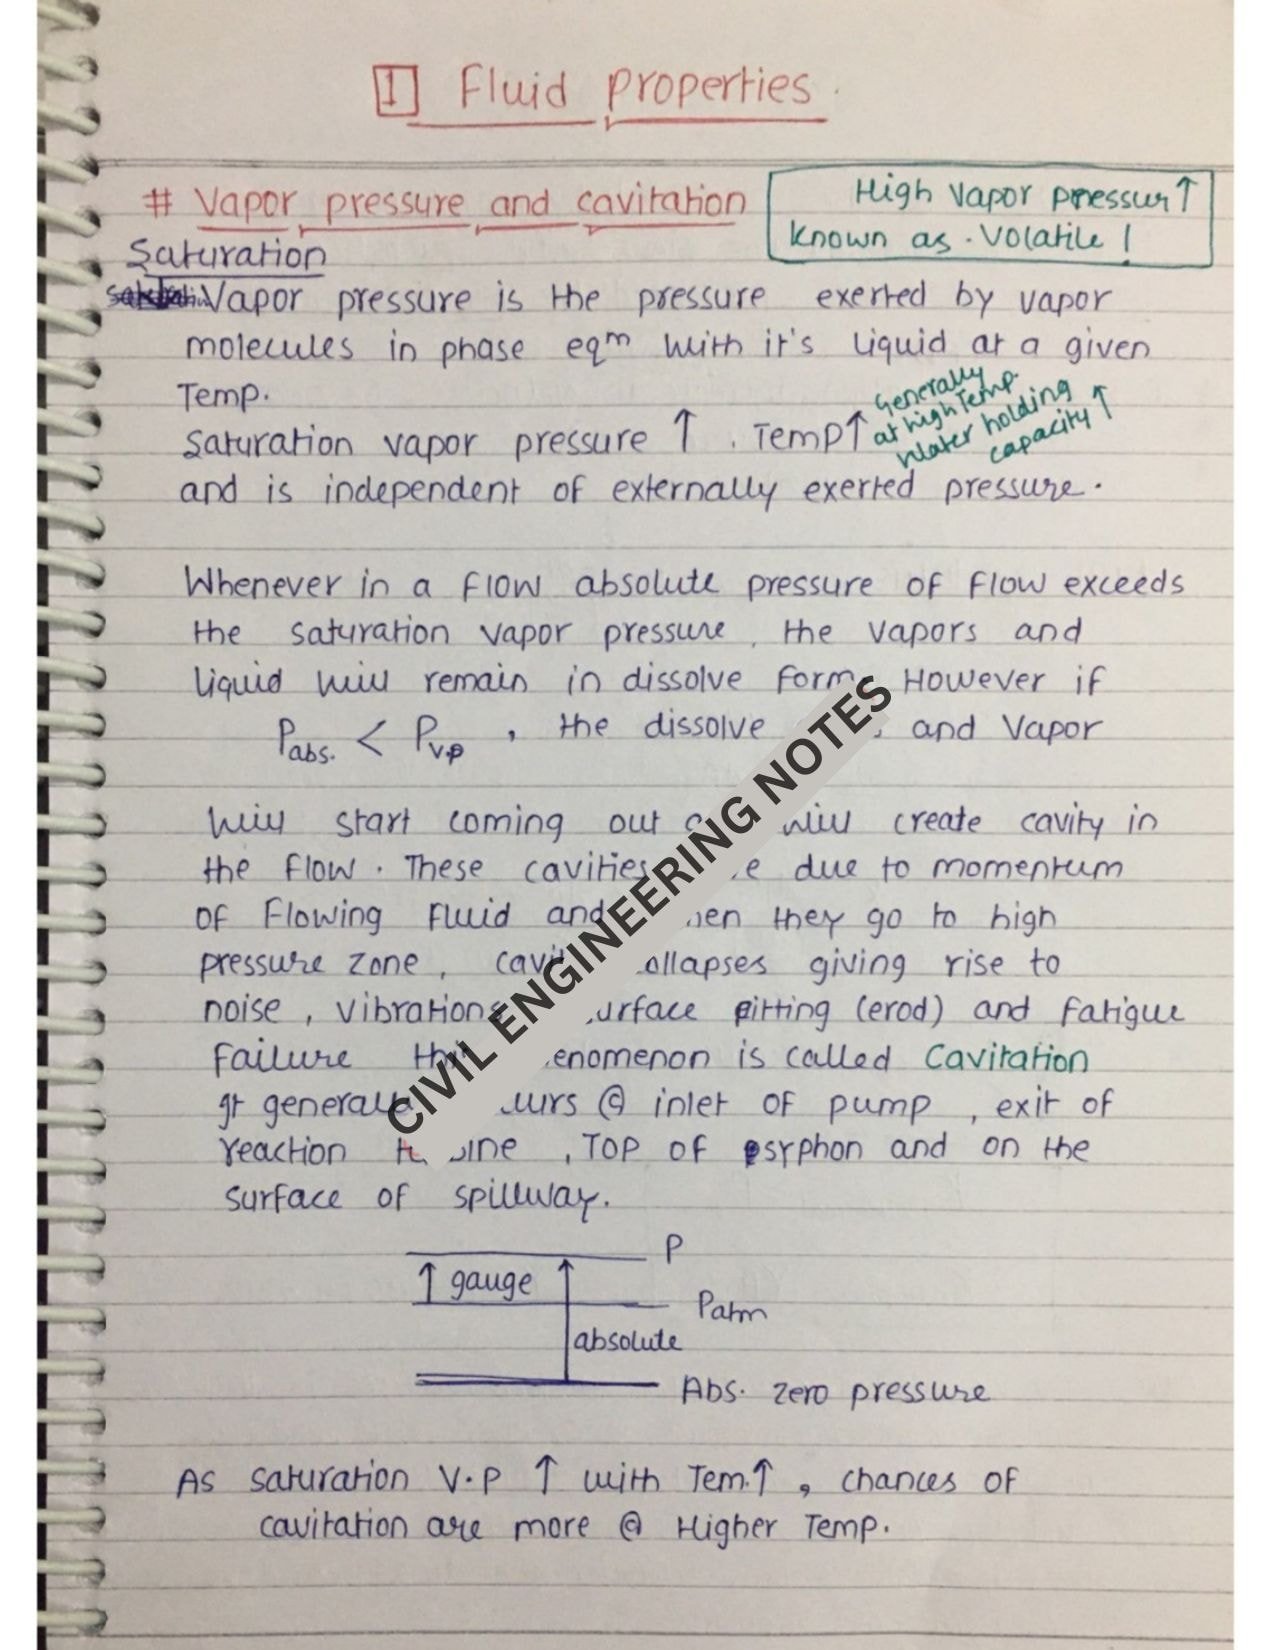 1 Fluid properties.
# Vapor pressure and cavitation
High Vapor pressur↑
known as. Volatile !
Saturation
Vapor pressure is the pressure exerted by vapor
molecules in phase eqm with it's liquid at a given
Temp.
Saturation vapor pressure ↑ . Temp↑
Generally
at high Temp.
Water holding
capacity ↑
and is independent of externally exerted pressure.
Whenever in a flow absolute pressure of flow exceeds
the saturation vapor pressure, the vapors and
liquid will remain in dissolve form. However if
Pabs. < Pv.p , the dissolve and Vapor
will start coming out will create cavity in
the flow. These cavities due to momentum
of Flowing fluid and they go to high
pressure zone,
noise, vibrations pitting (erod) and fatigue
failure is called Cavitation
gt @ inlet of pump, exit of
reaction , Top of syphon and on the
surface of spillway.
P
↑ gauge
Patm
absolute
Abs. zero pressure
As saturation V.P ↑ with Tem.↑, chances of
cavitation are more @ Higher Temp.
CIVIL ENGINEERING NOTES